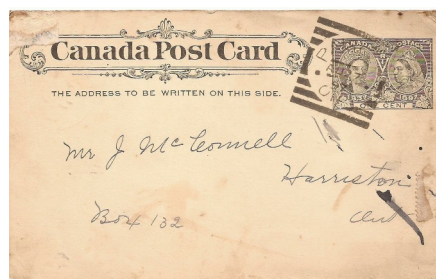 Canada Post Card
THE ADDRESS TO BE WRITTEN ON THIS SIDE.
CANADA POSTAGE
ONE CENT
Mr J McConnell
Harriston
Ont
Box 132